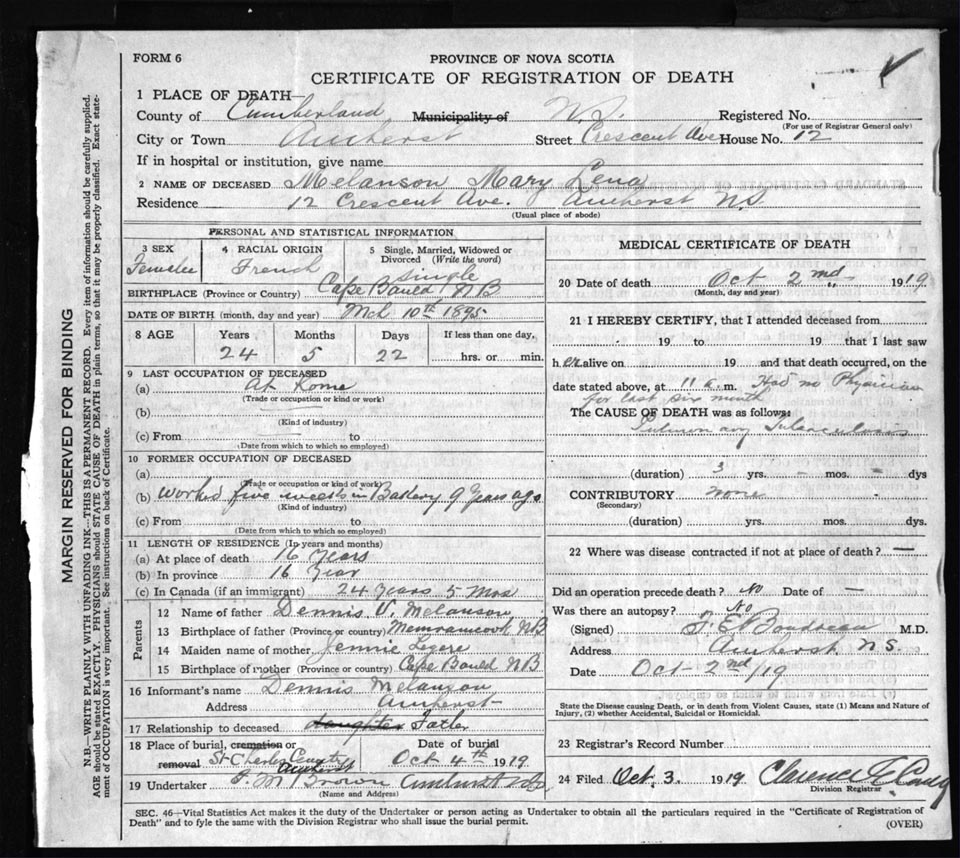 FORM 6
PROVINCE OF NOVA SCOTIA
CERTIFICATE OF REGISTRATION OF DEATH
1 PLACE OF DEATH—
County of Cumberland Municipality of N.S. Registered No.
(For use of Registrar General only)
City or Town Amherst Street Crescent Ave House No. 12
If in hospital or institution, give name
2 NAME OF DECEASED Melanson Mary Lena
Residence 12 Crescent Ave. Amherst N.S.
(Usual place of abode)
PERSONAL AND STATISTICAL INFORMATION
3 SEX 4 RACIAL ORIGIN 5 Single, Married, Widowed or
Divorced (Write the word)
Female French single
BIRTHPLACE (Province or Country) Cape Bauld NB
DATE OF BIRTH (month, day and year) Mch 10th 1895
8 AGE Years Months Days If less than one day,
24 5 22 hrs. or min.
9 LAST OCCUPATION OF DECEASED
(a) At Home
(Trade or occupation or kind or work)
(b)
(Kind of industry)
(c) From to
(Date from which to which so employed)
10 FORMER OCCUPATION OF DECEASED
(a)
(Trade or occupation or kind of work)
(b) Worked five weeks in Bakery 9 Years ago
(Kind of industry)
(c) From to
(Date from which to which so employed)
11 LENGTH OF RESIDENCE (In years and months)
(a) At place of death 16 Years
(b) In province 16 Year
(c) In Canada (if an immigrant) 24 Years 5 Mos
Parents
12 Name of father Dennis V. Melanson
13 Birthplace of father (Province or country) Memramcook NB
14 Maiden name of mother Jennie Legere
15 Birthplace of mother (Province or country) Cape Bauld NB
16 Informant's name Dennis Melanson
Address Amherst
17 Relationship to deceased daughter Father
18 Place of burial, cremation or Date of burial
removal St Charles Cemetery Amherst Oct 4th 1919
19 Undertaker F. M. Brown Amherst NS
(Name and Address)
MEDICAL CERTIFICATE OF DEATH
20 Date of death Oct 2nd 1919
(Month, day and year)
21 I HEREBY CERTIFY, that I attended deceased from
19 to 19 that I last saw
h er alive on 19 and that death occurred, on the
date stated above, at 11 a.m. Had no Physician
for last six month
The CAUSE OF DEATH was as follows:
Pulmonary Tuberculosis
(duration) 3 yrs. – mos. – dys
CONTRIBUTORY none
(Secondary)
(duration) yrs. mos. dys.
22 Where was disease contracted if not at place of death? —
Did an operation precede death? No Date of —
Was there an autopsy? No
(Signed) F. E. Boudreau M.D.
Address Amherst N.S.
Date Oct 2nd /19
State the Disease causing Death, or in death from Violent Causes, state (1) Means and Nature of
Injury, (2) whether Accidental, Suicidal or Homicidal.
23 Registrar's Record Number
24 Filed Oct. 3. 1919 Clarence
Division Registrar
SEC. 46—Vital Statistics Act makes it the duty of the Undertaker or person acting as Undertaker to obtain all the particulars required in the "Certificate of Registration of
Death" and to fyle the same with the Division Registrar who shall issue the burial permit.
(OVER)
MARGIN RESERVED FOR BINDING
N.B.—WRITE PLAINLY WITH UNFADING INK—THIS IS A PERMANENT RECORD. Every item of information should be carefully supplied.
AGE should be stated EXACTLY. PHYSICIANS should STATE CAUSE OF DEATH in plain terms, so that it may be properly classified. Exact state-
ment of OCCUPATION is very important. See instructions on back of Certificate.